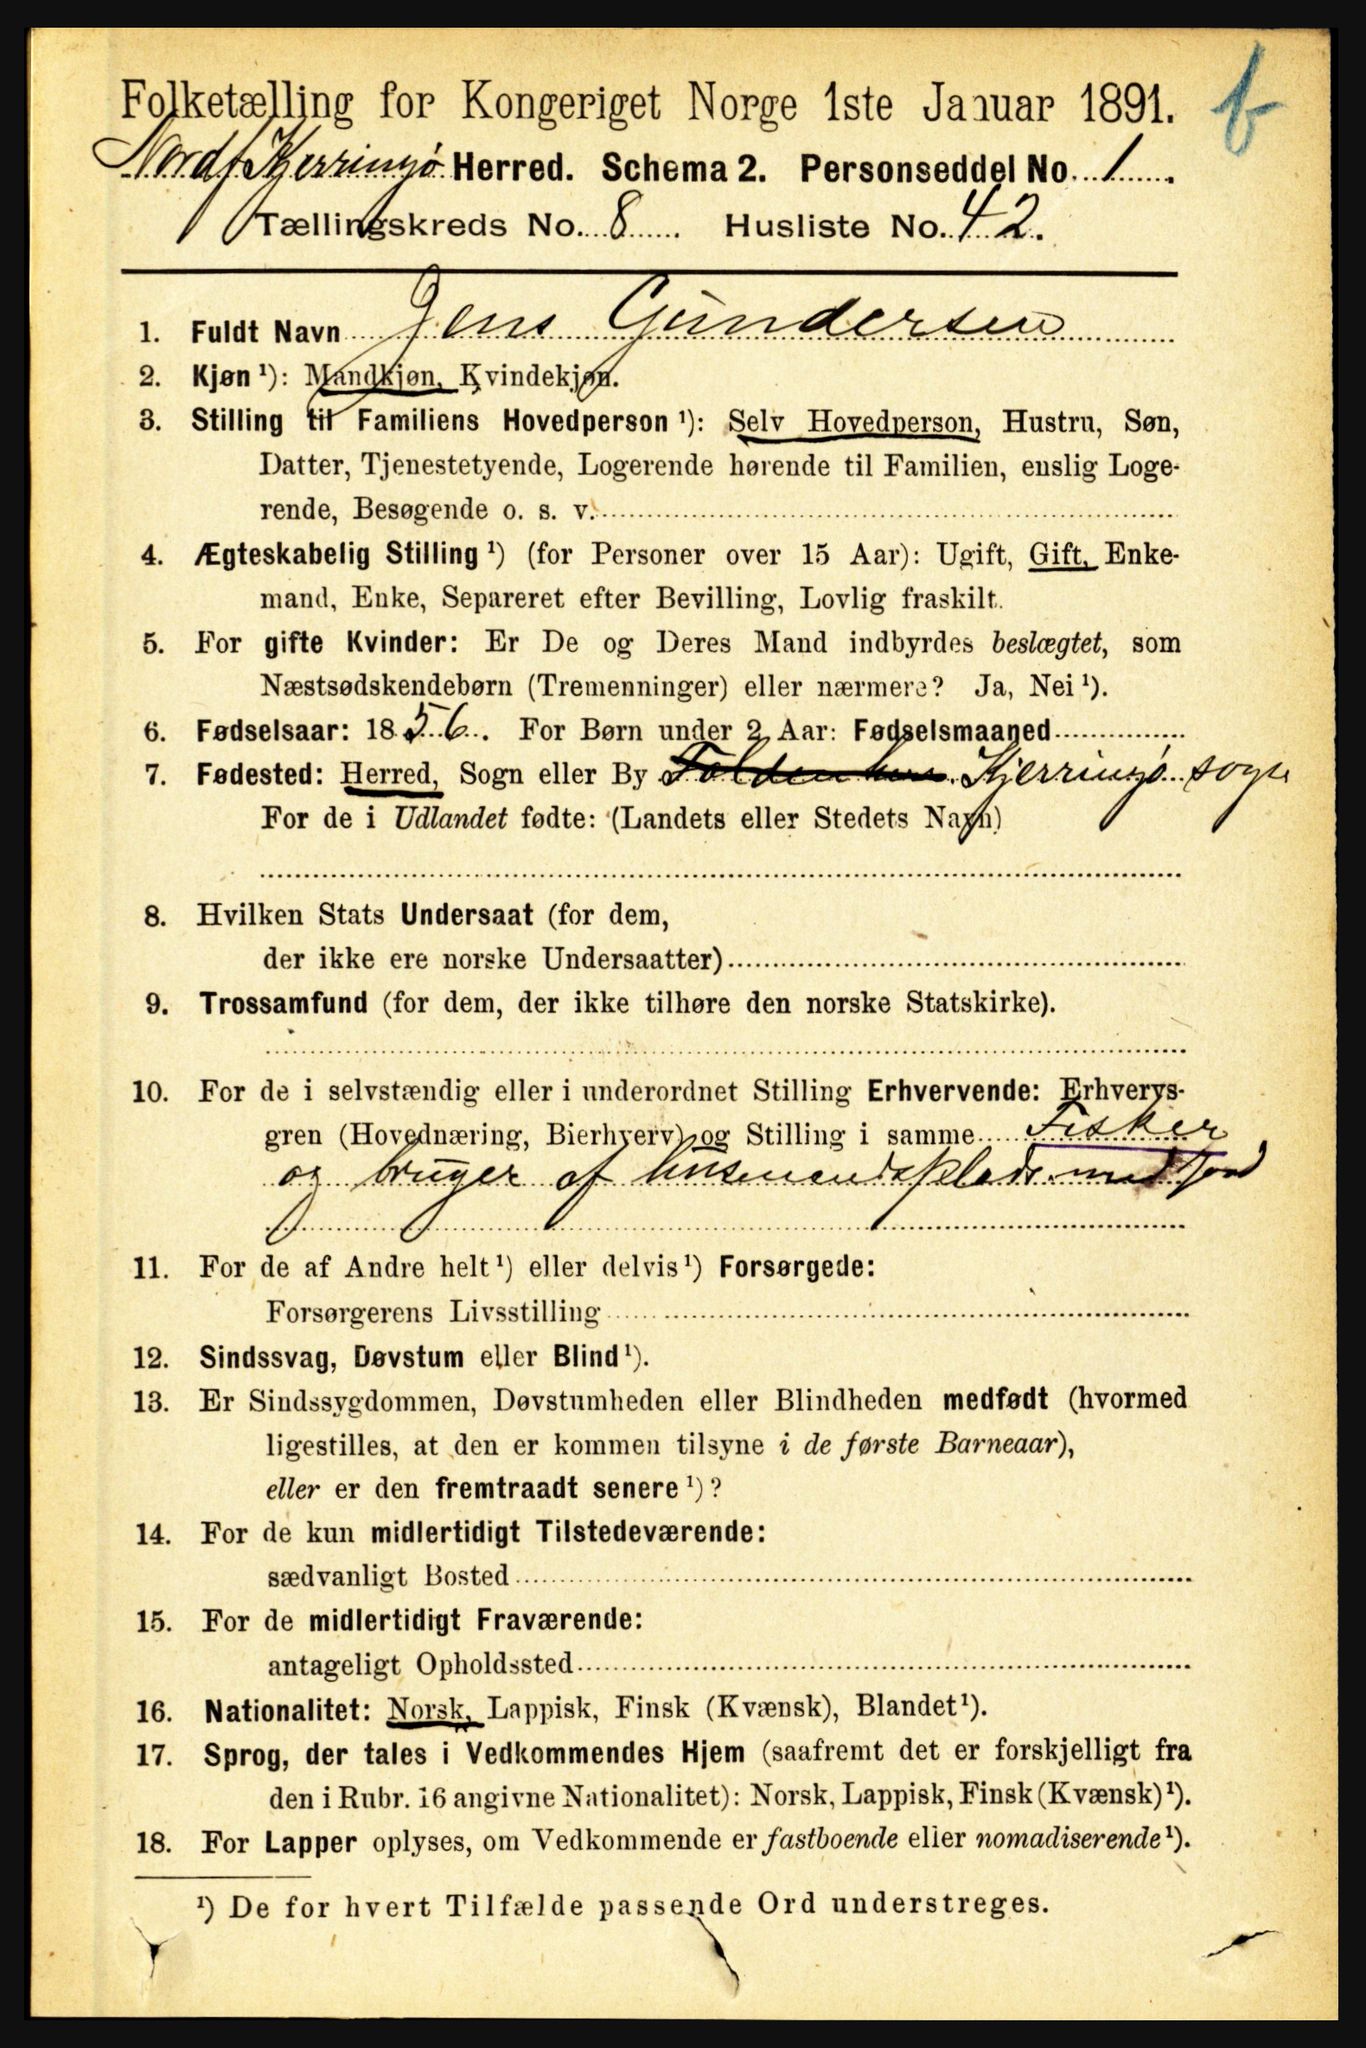 Folketælling for Kongeriget Norge 1ste Januar 1891.
Nordf. Kjerringø Herred. Schema 2. Personseddel No. 1
Tællingskreds No. 8 Husliste No. 42.
1. Fuldt Navn Jens Gundersen
2. Kjøn ¹): Mandkjøn, Kvindekjøn.
3. Stilling til Familiens Hovedperson ¹): Selv Hovedperson, Hustru, Søn,
Datter, Tjenestetyende, Logerende hørende til Familien, enslig Loge-
rende, Besøgende o. s. v.
4. Ægteskabelig Stilling ¹) (for Personer over 15 Aar): Ugift, Gift, Enke-
mand, Enke, Separeret efter Bevilling, Lovlig fraskilt.
5. For gifte Kvinder: Er De og Deres Mand indbyrdes beslægtet, som
Næstsødskendebørn (Tremenninger) eller nærmere? Ja, Nei ¹).
6. Fødselsaar: 1856. For Børn under 2 Aar: Fødselsmaaned
7. Fødested: Herred, Sogn eller By Folden Kjerringø sogn
For de i Udlandet fødte: (Landets eller Stedets Navn)
8. Hvilken Stats Undersaat (for dem,
der ikke ere norske Undersaatter)
9. Trossamfund (for dem, der ikke tilhøre den norske Statskirke).
10. For de i selvstændig eller i underordnet Stilling Erhvervende: Erhvervs-
gren (Hovednæring, Bierhverv) og Stilling i samme Fisker
og bruger af husmandsplads med jord
11. For de af Andre helt ¹) eller delvis ¹) Forsørgede:
Forsørgerens Livsstilling
12. Sindssvag, Døvstum eller Blind ¹).
13. Er Sindssygdommen, Døvstumheden eller Blindheden medfødt (hvormed
ligestilles, at den er kommen tilsyne i de første Barneaar),
eller er den fremtraadt senere ¹)?
14. For de kun midlertidigt Tilstedeværende:
sædvanligt Bosted
15. For de midlertidigt Fraværende:
antageligt Opholdssted
16. Nationalitet: Norsk, Lappisk, Finsk (Kvænsk), Blandet ¹).
17. Sprog, der tales i Vedkommendes Hjem (saafremt det er forskjelligt fra
den i Rubr. 16 angivne Nationalitet): Norsk, Lappisk, Finsk (Kvænsk) ¹).
18. For Lapper oplyses, om Vedkommende er fastboende eller nomadiserende ¹).
¹) De for hvert Tilfælde passende Ord understreges.